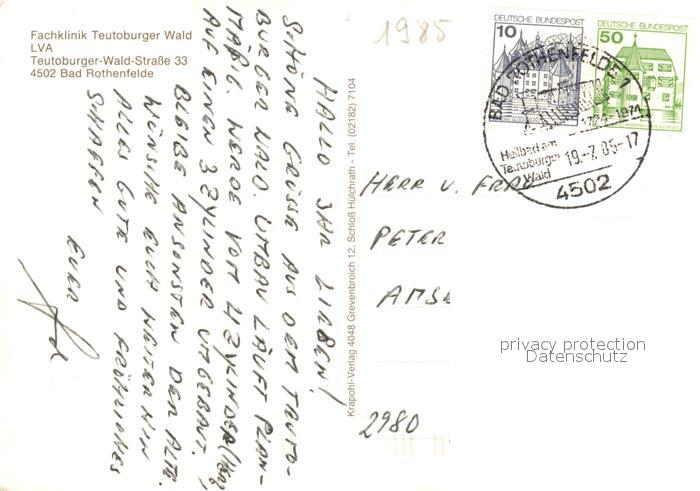 Fachklinik Teutoburger Wald
LVA
Teutoburger-Wald-Straße 33
4502 Bad Rothenfelde
1985
HALLO IHR LIEBEN!
SCHÖNE GRÜSSE AUS DEM TEUTO-
BURGER WALD. UMBAU LÄUFT PLAN-
MÄßIG. WERDE VOM 4 ZYLINDER (HERZ)
AUF EINEN 3 ZYLINDER UMGEBAUT.
BLEIBE ANSONSTEN DER ALTE.
WÜNSCHE EUCH WEITERHIN
ALLES GUTE UND FRÖHLICHES
SCHAFFEN
EUER
Krapohl-Verlag 4048 Grevenbroich 12, Schloß Hülchrath - Tel. (02182) 7104
DEUTSCHE BUNDESPOST
10
DEUTSCHE BUNDESPOST
50
BAD ROTHENFELDE 1
1724-1974
Heilbad am
Teutoburger
Wald
19.-7.85-17
4502
HERR U. FRAU
PETER
2980
privacy protection
Datenschutz